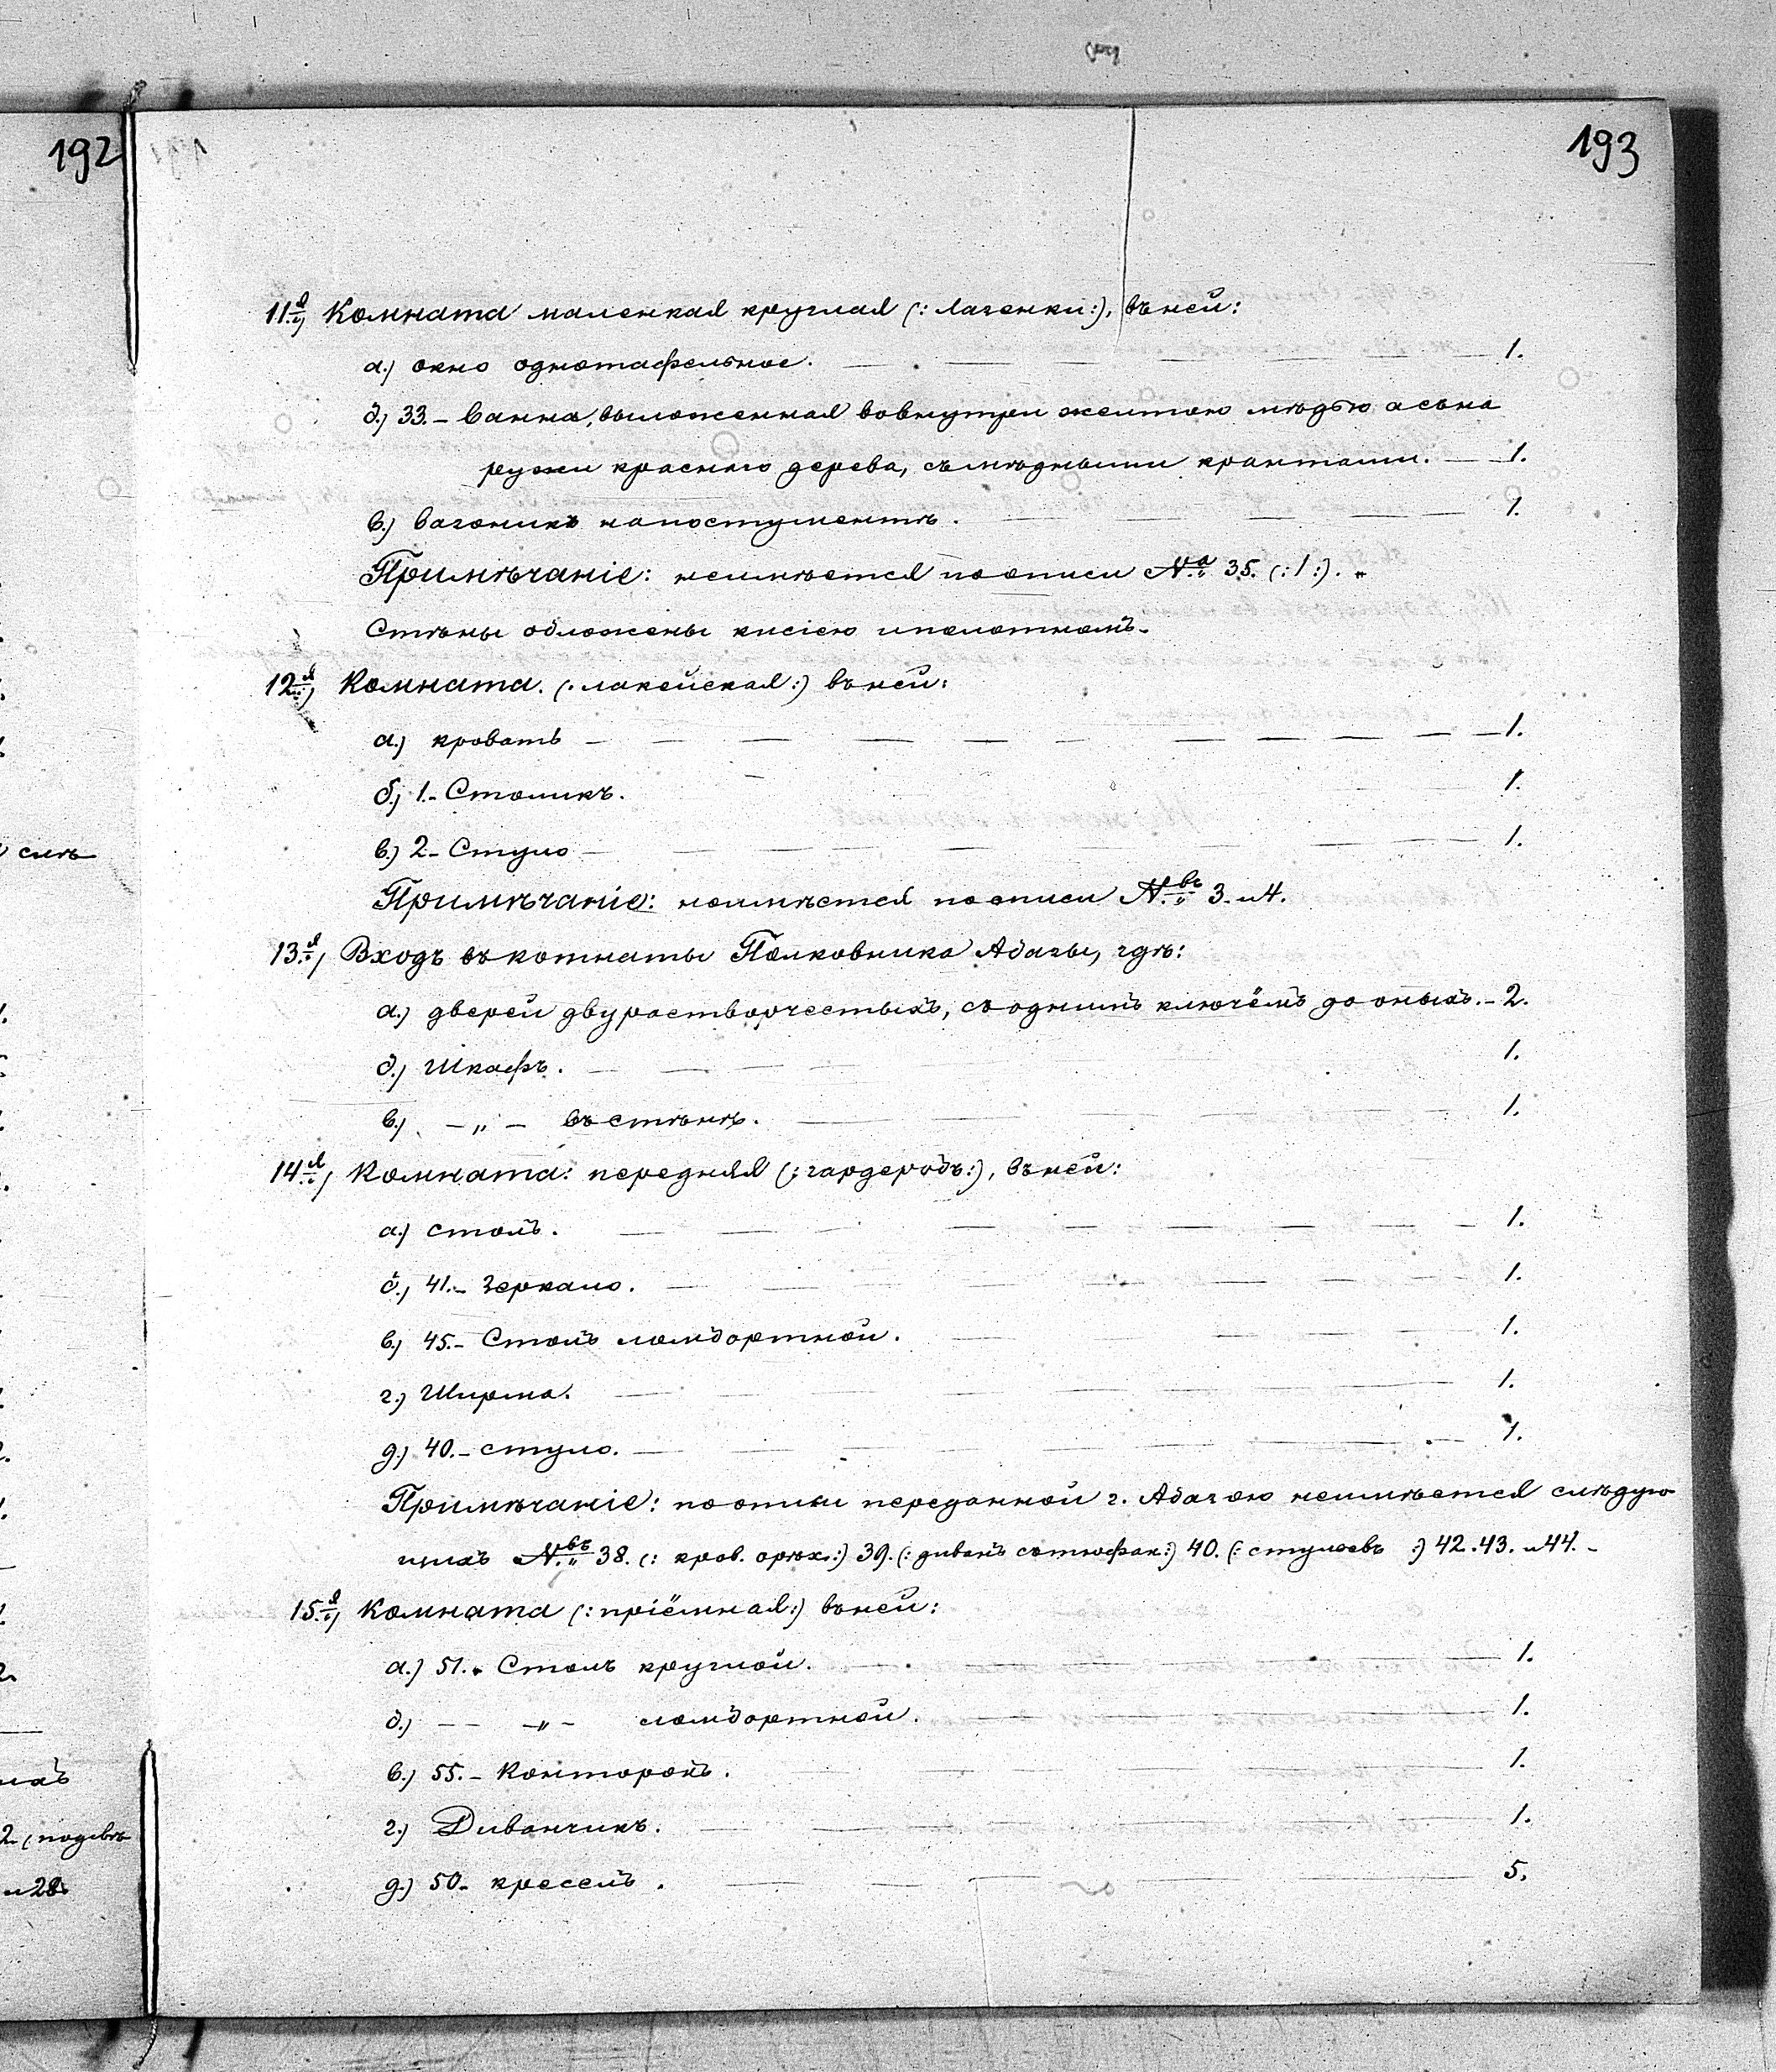 192
193
11.я, Комната маленкая круглая (: Лазенки :), въ ней:
а.) окно однотафельное. 1.
б.) 33. – Ванна, выложенная вовнутри желтою мѣдью а сьна
ружи краснаго дерева, съ мѣдными крантами. 1.
в.) вазоникъ на постументѣ. 1.
Примѣчаніе: неимѣется по описи №а 35. (: 1 :).
Стѣны обложены кисіею и полотномъ.
12.я, Комната. (: лакейская :) въ ней:
а.) кровать 1.
б.) 1. – Столикъ. 1.
в.) 2 – Стуло 1.
Примѣчаніе: неимѣется по описи №въ 3. и 4.
13.я, Входъ въ комнаты Полковника Абазы, гдѣ:
а.) дверей двурастворчестыхъ, съ однимъ ключёмъ до оныхъ. – 2.
б.) Шкафъ. 1.
в.) – „ – въ стѣнѣ. 1.
14.я, Комната: передняя (: гардеробъ :), въ ней:
а.) столъ. 1.
б.) 41. – Зеркало. 1.
в.) 45. – Столъ ломбортной. 1.
г.) Ширма. 1.
д.) 40. – стуло. 1.
Примѣчаніе: по описи переданной г. Абазою неимѣется слѣдую
щихъ №въ 38. (: кров. орѣх. :) 39. (: диванъ сотюфак. :) 40. (: стульевъ :) 42. 43. и 44. –
15.я, Комната (: пріёмная :) въ ней:
а.) 51. Столъ круглой. 1.
б.) – „ – ломбортной. 1.
в.) 55. – Конторокъ. 1.
г.) Диванчикъ. 1.
д.) 50 – креселъ. 5.
слѣ
2 (подсвѣ
и 28